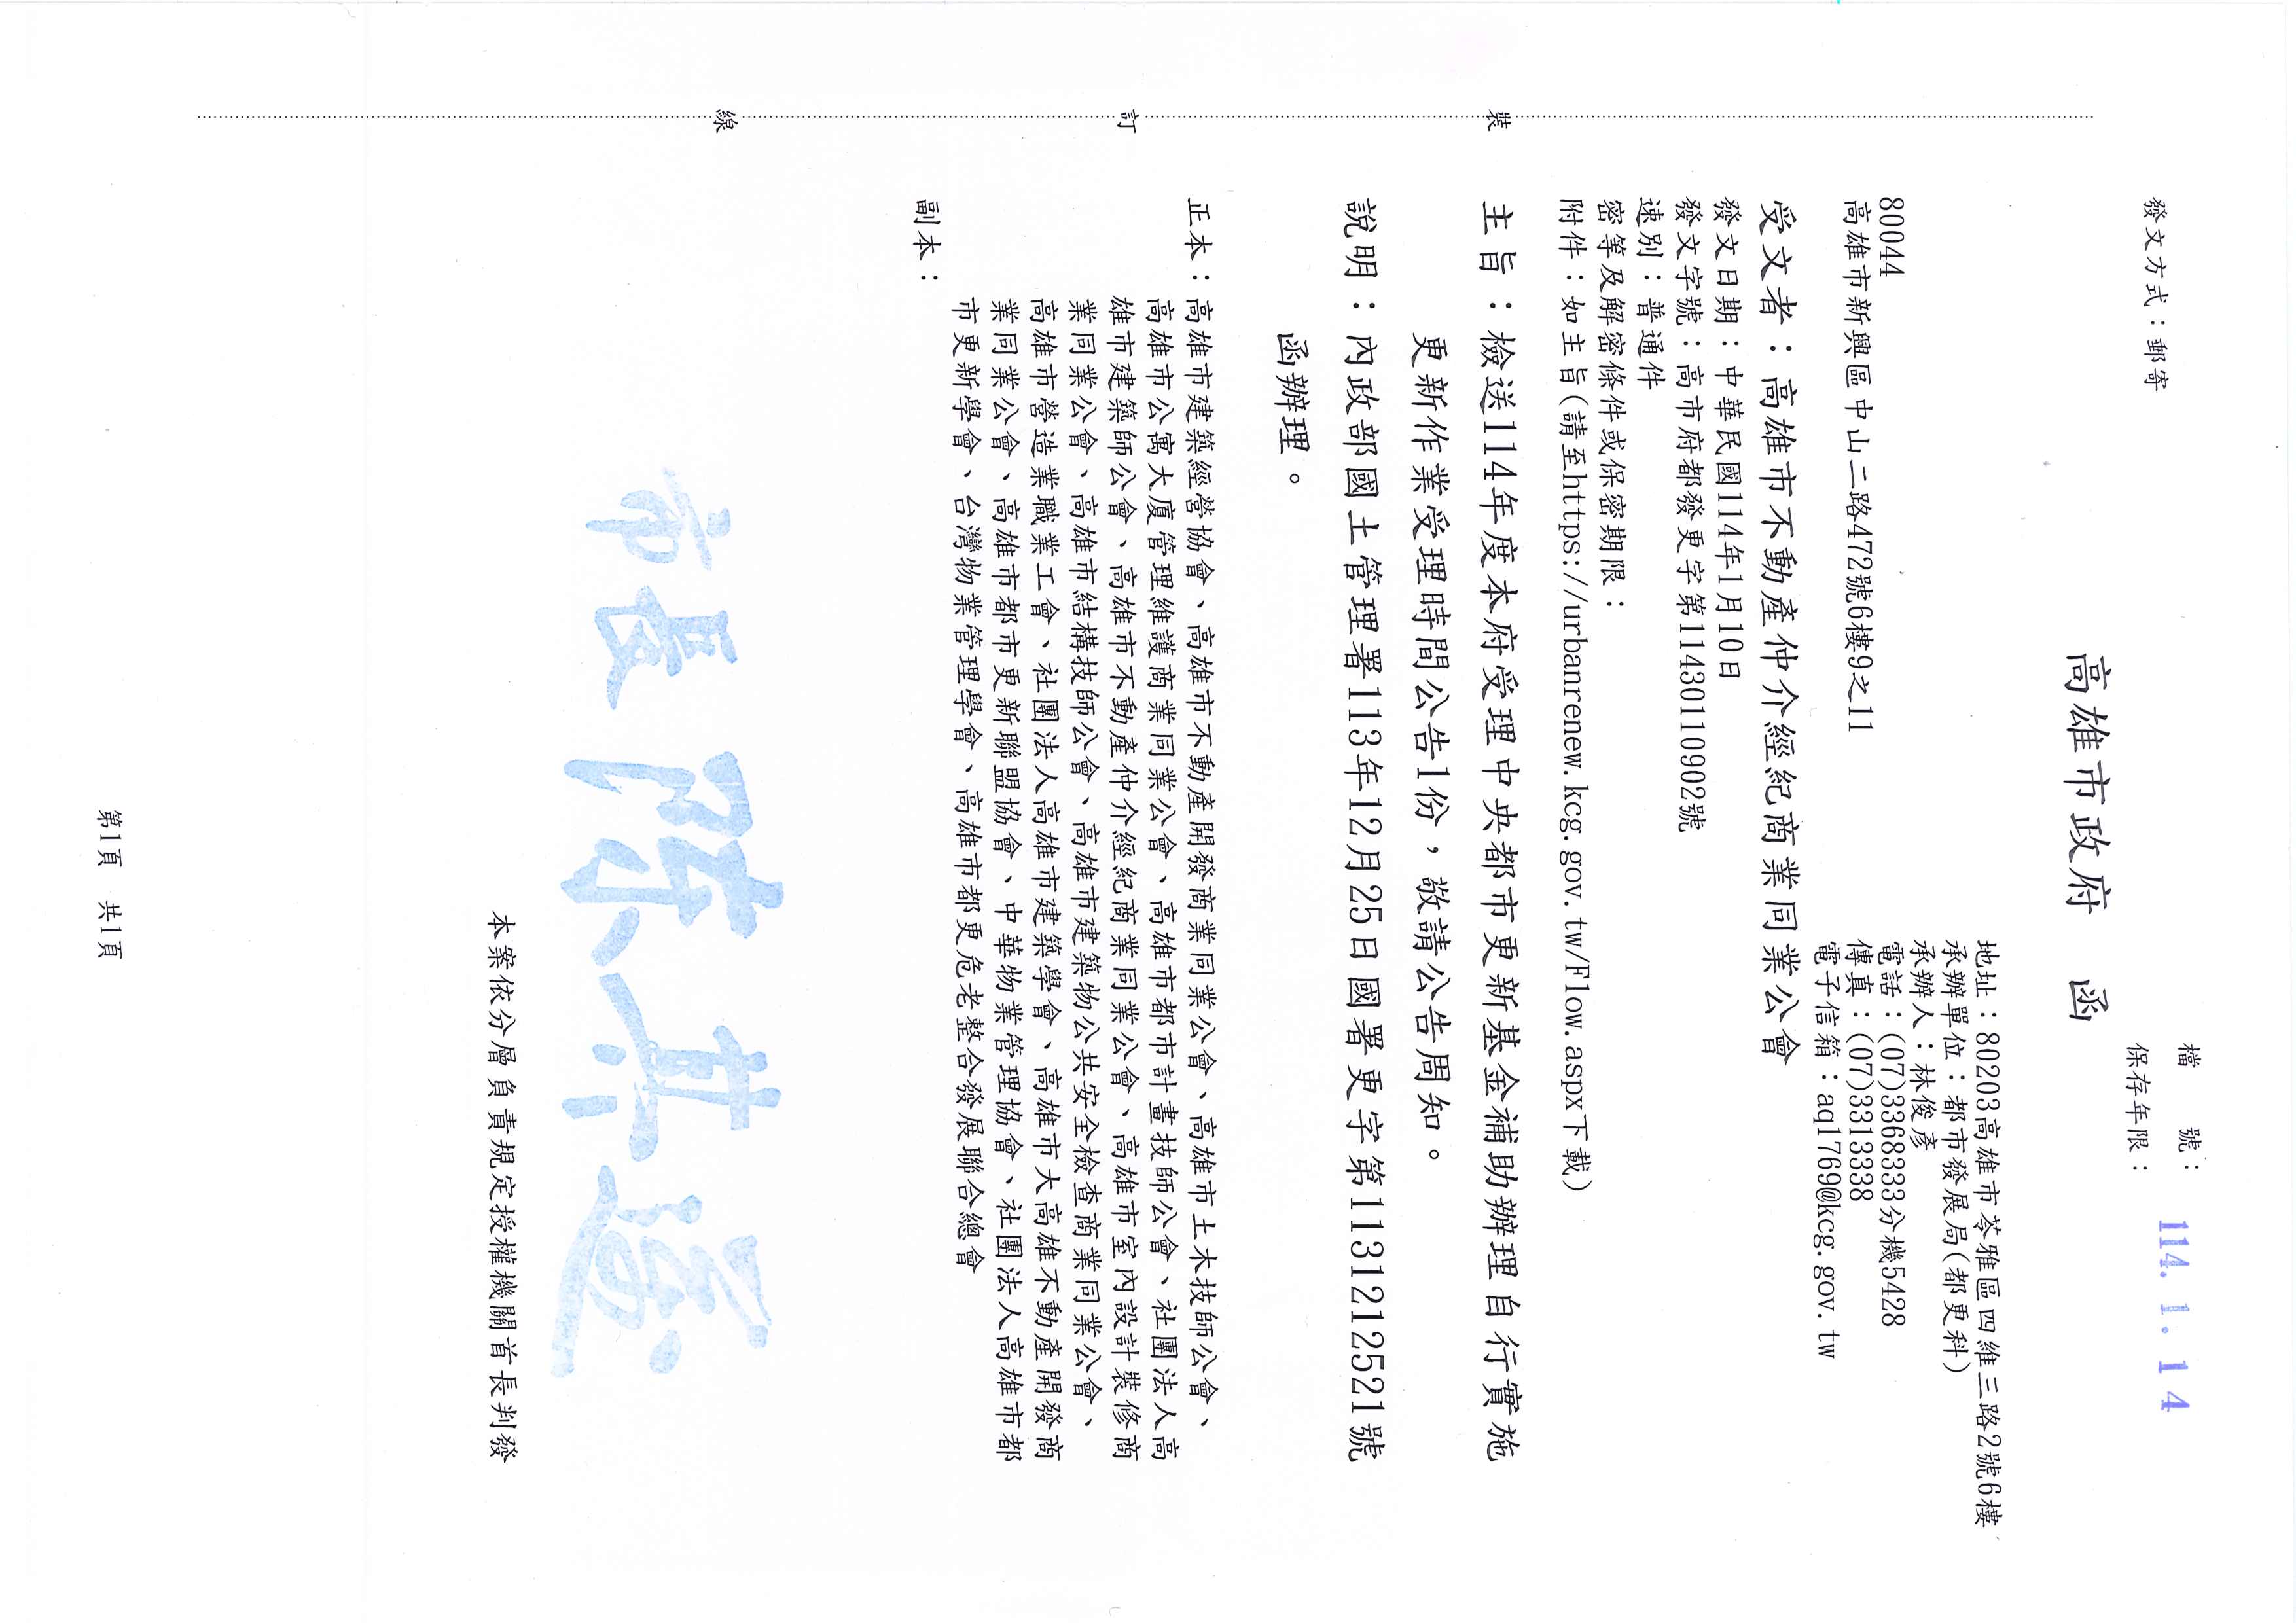 檔　　號：
保存年限：
114. 1. 14
發文方式：郵寄
高雄市政府　函
地址：80203高雄市苓雅區四維三路2號6樓
承辦單位：都市發展局(都更科)
承辦人：林俊彥
電話：(07)3368333分機5428
傳真：(07)3313338
電子信箱：aq1769@kcg.gov.tw
80044
高雄市新興區中山二路472號6樓9之11
受文者：高雄市不動產仲介經紀商業同業公會
發文日期：中華民國114年1月10日
發文字號：高市府都發更字第11430110902號
速別：普通件
密等及解密條件或保密期限：
附件：如主旨(請至https://urbanrenew.kcg.gov.tw/Flow.aspx下載)
主旨：檢送114年度本府受理中央都市更新基金補助辦理自行實施
更新作業受理時間公告1份，敬請公告周知。
說明：內政部國土管理署113年12月25日國署更字第1131212521號
函辦理。
正本：高雄市建築經營協會、高雄市不動產開發商業同業公會、高雄市土木技師公會、
高雄市公寓大廈管理維護商業同業公會、高雄市都市計畫技師公會、社團法人高
雄市建築師公會、高雄市不動產仲介經紀商業同業公會、高雄市室內設計裝修商
業同業公會、高雄市結構技師公會、高雄市建築物公共安全檢查商業同業公會、
高雄市營造業職業工會、社團法人高雄市建築學會、高雄市大高雄不動產開發商
業同業公會、高雄市都市更新聯盟協會、中華物業管理協會、社團法人高雄市都
市更新學會、台灣物業管理學會、高雄市都更危老整合發展聯合總會
副本：
市長 陳其邁
本案依分層負責規定授權機關首長判發
裝
訂
線
第1頁　共1頁